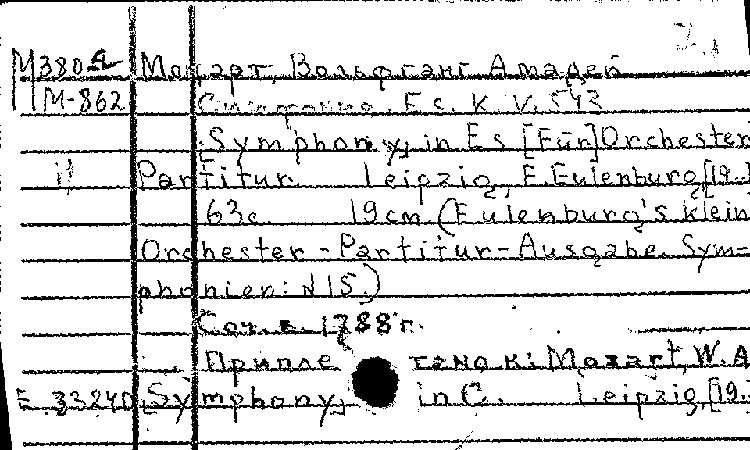 М380 Моцарт, Вольфганг Амадей
М-862 Симфония. Es. K. V. 543
[Symphony, in Es [Für] Orchester
Partitur Leipzig, E. Eulenburg, [19..]
63с. 19cm. (Eulenburg's klein
Orchester-Partitur-Ausgabe. Sym-
phonien: №15.)
Соч. в. 1788 г.
Припле тено к: Mozart, W. A
E. 33240 Symphony, in C. Leipzig, [19..